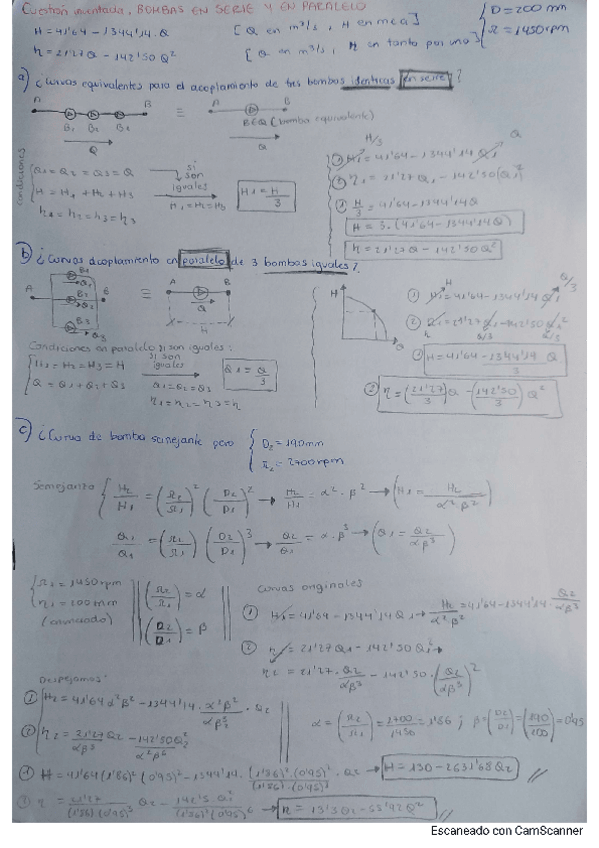 Cuestión inventada, BOMBAS EN SERIE Y EN PARALELO
H = 41'64 - 1344'14·Q [Q en m³/s, H en mca]
η = 21'27Q - 142'50 Q² [Q en m³/s, η en tanto por uno]
D = 200 mm
Ω = 1450 rpm
a) ¿Curvas equivalentes para el acoplamiento de tres bombas identicas en serie?
A B ≡ A B
B1 B2 B3 BEQ (bomba equivalente)
Q Q
condiciones
Q1 = Q2 = Q3 = Q
H = H1 + H2 + H3
η1 = η2 = η3
si son iguales
H1 = H2 = H3
H1 = H/3
H/3 Q
① H1 = 41'64 - 1344'14 Q1
② η1 = 21'27Q1 - 142'50(Q1)²
① H/3 = 41'64 - 1344'14Q
H = 3·(41'64 - 1344'14Q)
η = 21'27Q - 142'50Q²
b) ¿Curvas acoplamiento en paralelo de 3 bombas iguales?
A B1 Q1 B2 Q2 B3 Q3 B ≡ A B Q H
H Q
① H1 = 41'64 - 1344'14 Q1 H Q/3
② η1 = 21'27 Q1 - 142'50 Q1² η Q/3 Q/3
Condiciones en paralelo si son iguales:
H1 = H2 = H3 = H
Q = Q1 + Q2 + Q3
si son iguales
Q1 = Q2 = Q3
η1 = η2 = η3 = η
Q1 = Q/3
① H = 41'64 - 1344'14/3 Q
② η = (21'27/3) Q - (142'50/3) Q²
c) ¿Curva de bomba semejante pero
D2 = 190mm
Ω2 = 2700 rpm
Semejanza
H2/H1 = (Ω2/Ω1)² (D2/D1)² → H2/H1 = α²·β² → (H1 = H2/α²β²)
Q2/Q1 = (Ω2/Ω1) (D2/D1)³ → Q2/Q1 = α·β³ → (Q1 = Q2/αβ³)
Ω1 = 1450 rpm
(Ω2/Ω1) = α
(D2/D1) = β
Curvas originales
① H1 = 41'64 - 1344'14 Q1 → H2/α²β² = 41'64 - 1344'14·Q2/αβ³
② η = 21'27Q1 - 142'50 Q1²
η2 = 21'27·Q2/αβ³ - 142'50·(Q2/αβ³)²
Despejamos:
① H2 = 41'64 α²β² - 1344'14·α²β²/αβ³·Q2
② η2 = 21'27/αβ³ Q2 - 142'50/α²β⁶ Q2²
α = (Ω2/Ω1) = 2700/1450 = 1'86; β = (D2/D1) = (190/200) = 0'95
① H = 41'64(1'86)²(0'95)² - 1344'14·(1'86)²(0'95)²/(1'86)·(0'95)³·Q2 → H = 130 - 2631'68Q2
η = 21'27/(1'86)(0'95)³ Q2 - 142'5·Q2²/(1'86)²(0'95)⁶
Escaneado con CamScanner